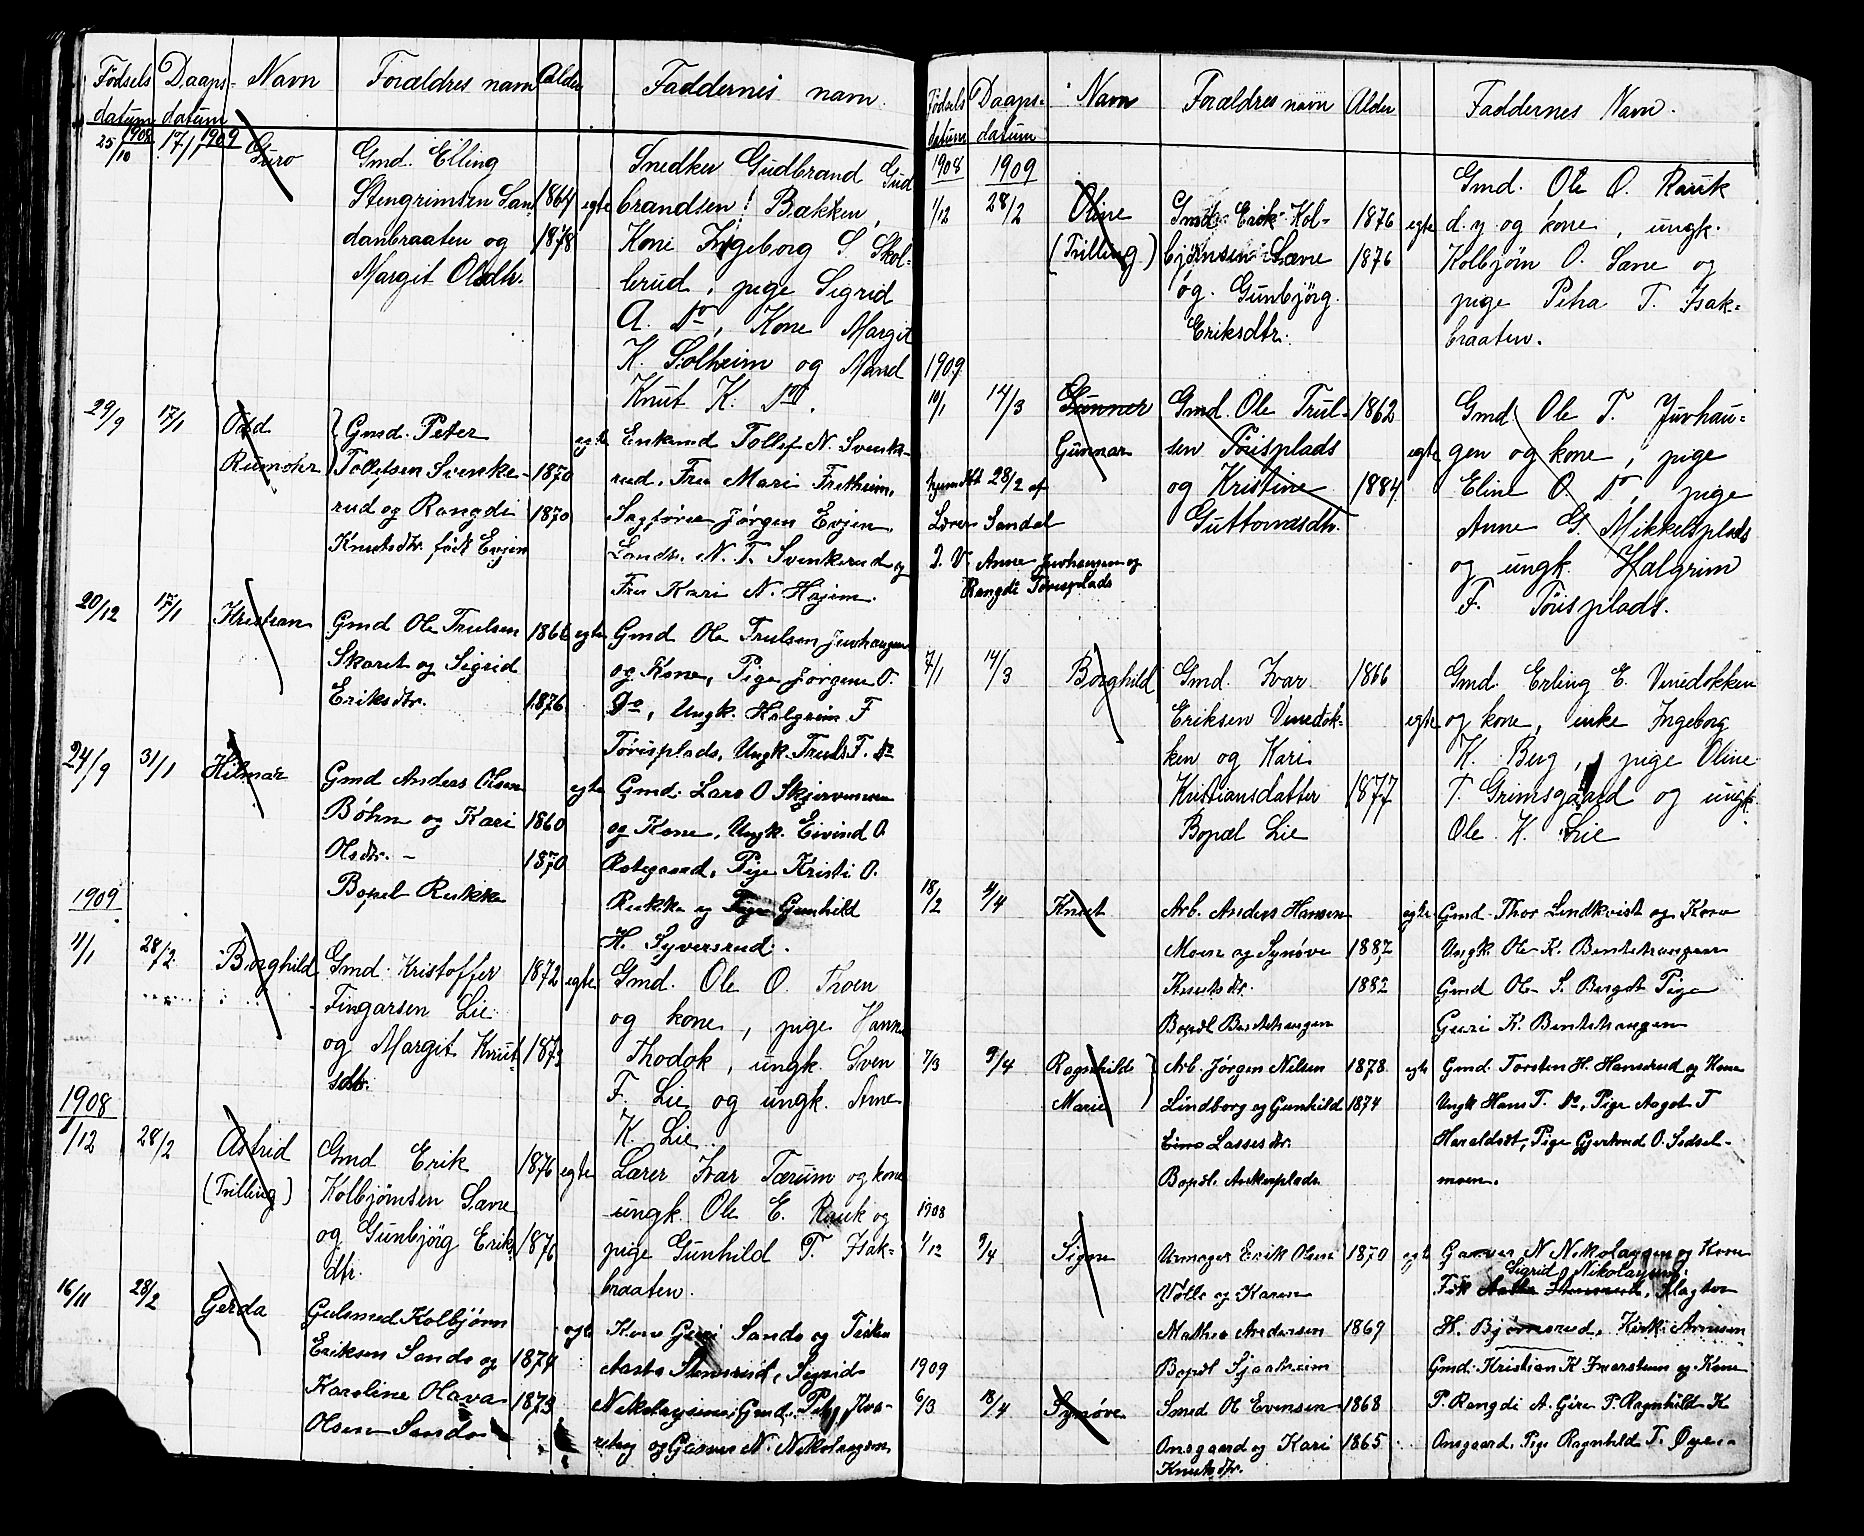 Fødsels Daaps- Navn Forældres navn Alder Faddernes navn.
datum datum
25/10 1908 17/1 1909 Guro Gmd. Elling Snedker Gudbrand Gud
Stengrimsen San 1864 egte brandsen Bækken,
danbraaten og 1878 Kone Ingeborg S. Skol-
Margit Olsdtr. brud, pige Sigrid
A. do, Kone Margit
K. Solheim og Mand
Knut K. do.
29/9 17/1 Odd Gmd. Peter egte Enkemd Tollef N. Svenke-
Rumohr Tollefsen Svenke- 1870 rud, Fru Mari Fretheim,
rud og Rangdi 1870 Sagfører Jørgen Evjen
Knutsdtr. født Evjen Landh. N. T. Svenkerud og
Fru Kari N. Hajem.
20/12 17/1 Kristian Gmd Ole Trulsen 1866 egte Gmd Ole Trulsen Juvhaugen
Skaret og Sigrid og Kone, Pige Jørgine O.
Eriksdtr. 1876 Do, Ungk. Halgrim F
Tørisplads, Ungk. Truls F. do
24/9 31/1 Hilmar Gmd Anders Olsen egte Gmd. Lars O Skjervenen
Bøhn og Kari 1860 og Kone, Ungk. Eivind O.
Olsdtr. - 1870 Rotegaard, Pige Kristi O.
Bopæl Rukke Rukke og Pige Gunhild
1909 H. Syversrud.
11/1 28/2 Borghild Gmd. Kristoffer 1872 egte Gmd. Ole O. Thoen
Fingarsen Lie og kone, pige Hanna
og Margit Knut- 1873 Thodok, ungk. Sven
sdtr. F. Lie og ungk. Arne
1908 K. Lie.
1/12 28/2 Astrid Gmd Erik 1876 egte Lærer Ivar Tærum og kone
(Trilling) Kolbjørnsen Savre ungk. Ole E. Rauk og
og Gunbjørg Erik 1876 pige Gunhild T. Isak-
dtr. braaten.
16/11 28/2 Gerda Gulsmed Kolbjørn egte Kone Guri Sando og
Eriksen Sando og 1874 Aasta Stensrud, Sigrid
Karoline Olava 1873 Nikolaysen, Gmd.
Olsen Sando og Garver N. Nikolaysen
Fødsels Daaps- Navn Forældres navn Alder Faddernes Navn.
datum datum
1908 1909 Gmd. Ole O. Rauk
1/12 28/2 Oline Gmd. Erik Kol- 1876 egte d.y og kone, ungk.
(Trilling) bjørnsen Sævre 1876 Kolbjørn O. Savre og
og Gunbjørg pige Petra T. Isak-
Eriksdtr. braaten.
1909
10/1 14/3 Gunner Gmd. Ole Trul- 1862 Gmd Ole T. Juvhau-
Gunnar sen Tørisplads egte gen og kone, pige
hjemdbt 28/2 af og Kristine 1884 Eline O. do, pige
Lærer Sandal Guttormsdtr. Anne G. Mikkelsplads
Anne Juvhaugen og og ungk. Halgrim
Rangdi Tørisplads F. Tørisplads.
7/1 14/3 Borghild Gmd. Ivar 1866 Gmd. Erling E. Vinedokken
Eriksen Vinedok- egte og kone, enke Ingeborg
ken og Kari K. Berg, pige Oline
Kristiansdatter 1877 T. Grimsgaard og ungk.
Bopæl Lie Ole K. Lie
18/2 4/4 Knut Arb. Anders Hansen egte Gmd. Thor Lindkvist og Kone
Moen og Synøve 1887 Ungk. Ole K. Bentehaugen
Knutsdtr. 1882 Gmd Ole S. Bergst Pige
Bopæl Bentehaugen Guri K. Bentehaugen
7/3 9/4 Ragnhild Arb. Jørgen Nilsen 1878 egte Gmd. Torsten H. Hansrud og Kone
Marie Lindborg og Gunhild 1874 Ungk Hans T. do, Pige Aagot T
Lassesdtr. Haraldset, Pige Gjertrud O. Sedsel-
Bopæl. Ankerplads moen.
1908
1/12 9/4 Signe Urmager Erik Olsen 1870 egte Garver N Nikolaysen og Kone
Sigrid Nikolaysen
Vølle og Karen Frk Slagter
Mathea Andersen 1869 H. Bjørnerud,
1909 Bopæl Sjaatheim Gmd. Kristian K og Kone
6/3 18/4 Synøve Smed Ol Evensen 1868 P. Rangdi A. Gire P. Ragnhild K
Onsgaard og Kari 1865 Onsgaard, Pige Ragnhild T. Øye..
Knutsdtr.